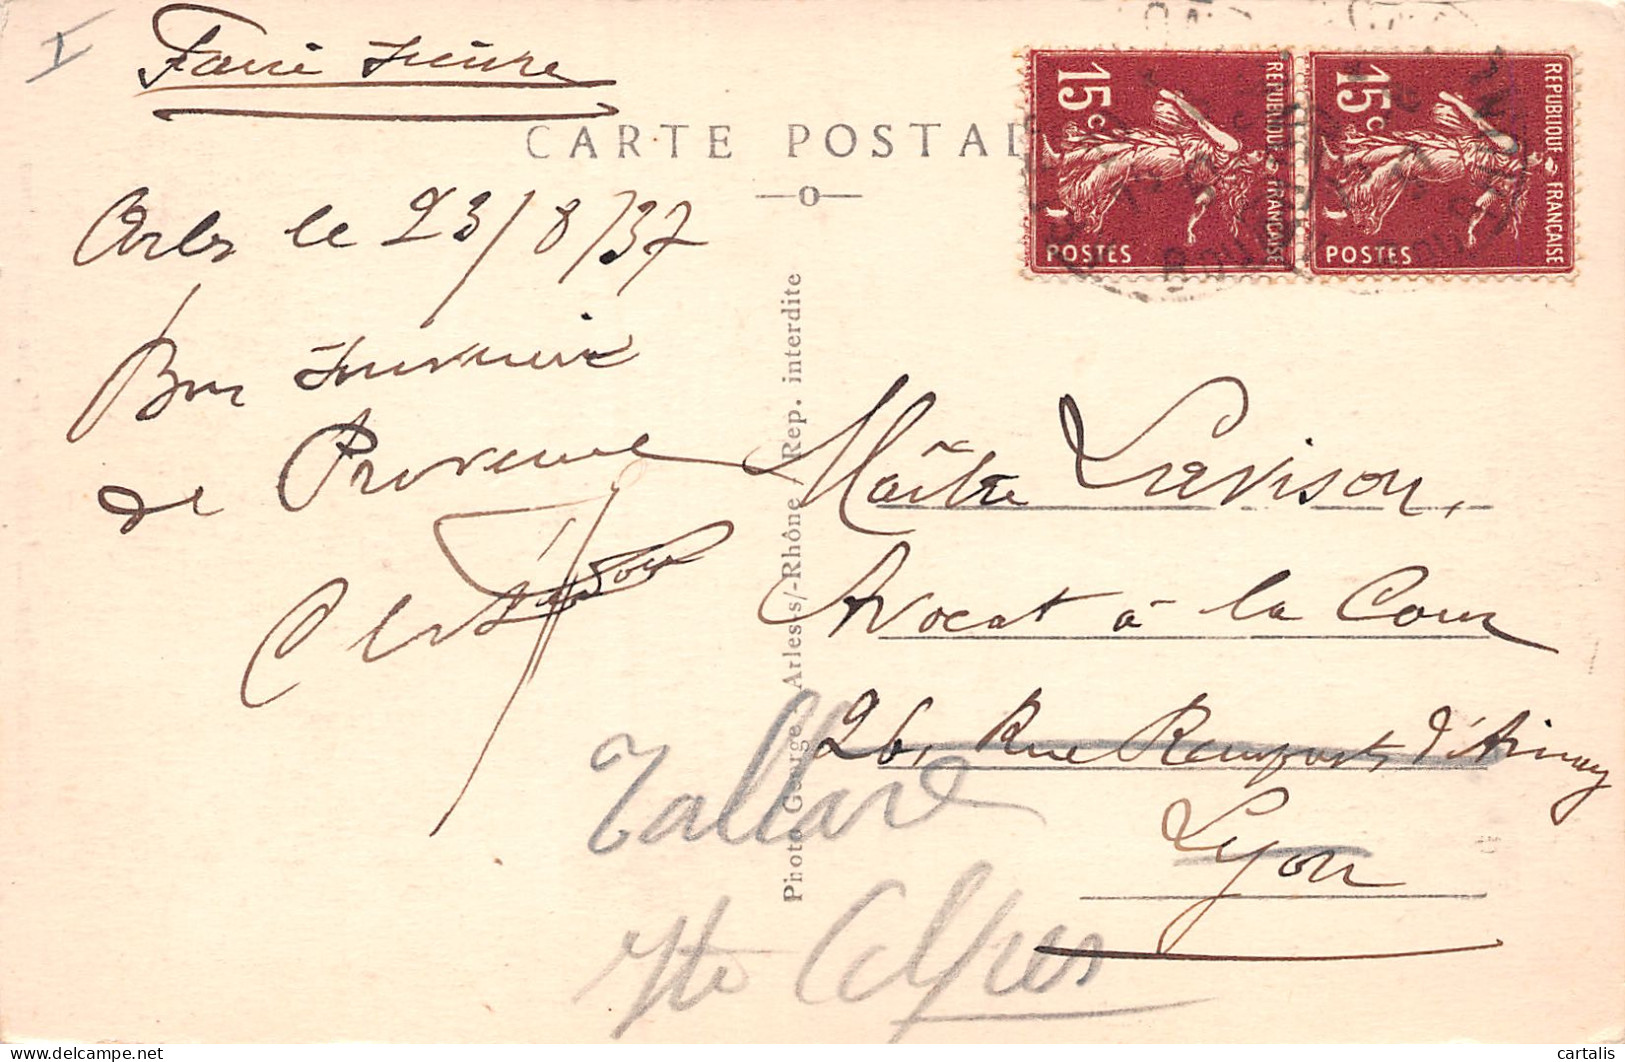 I
Faire suivre
CARTE POSTAL
15c REPUBLIQUE FRANCAISE POSTES
15c REPUBLIQUE FRANCAISE POSTES
Arles le 23/8/37
Bon souvenir
de Provence
Photo George, Arles s/-Rhône / Rep. interdite
Maître
Avocat à la Cour
26, Rue Remparts d'Ainay
Lyon
Tallard
Htes Alpes
cartalis
delcampe.net